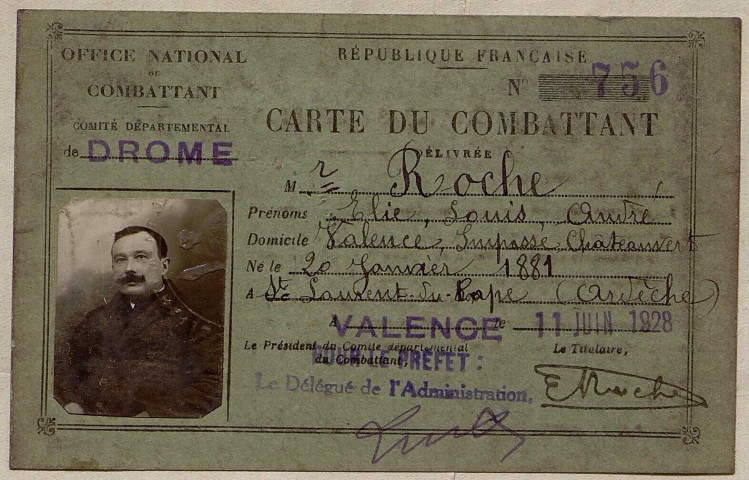 OFFICE NATIONAL
DU
COMBATTANT
COMITÉ DÉPARTEMENTAL
de DROME
RÉPUBLIQUE FRANÇAISE
N° 756
CARTE DU COMBATTANT
DÉLIVRÉE
M r Roche
Prénoms Elie, Louis, André
Domicile Valence, Impasse Châteauvert
Né le 20 Janvier 1881
A St Laurent-du-Pape (Ardèche)
A VALENCE le 11 JUIN 1928
Le Président du Comité départemental
du Combattant,
POUR LE PRÉFET :
Le Délégué de l'Administration,
Le Titulaire,
ERoche